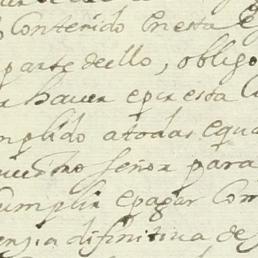 Contenido en esta
parte dello, obligo
a haver e por esta
mplido a todas equa
nuestro señor para
cumplir e pagar Com
enzia difinitiva de